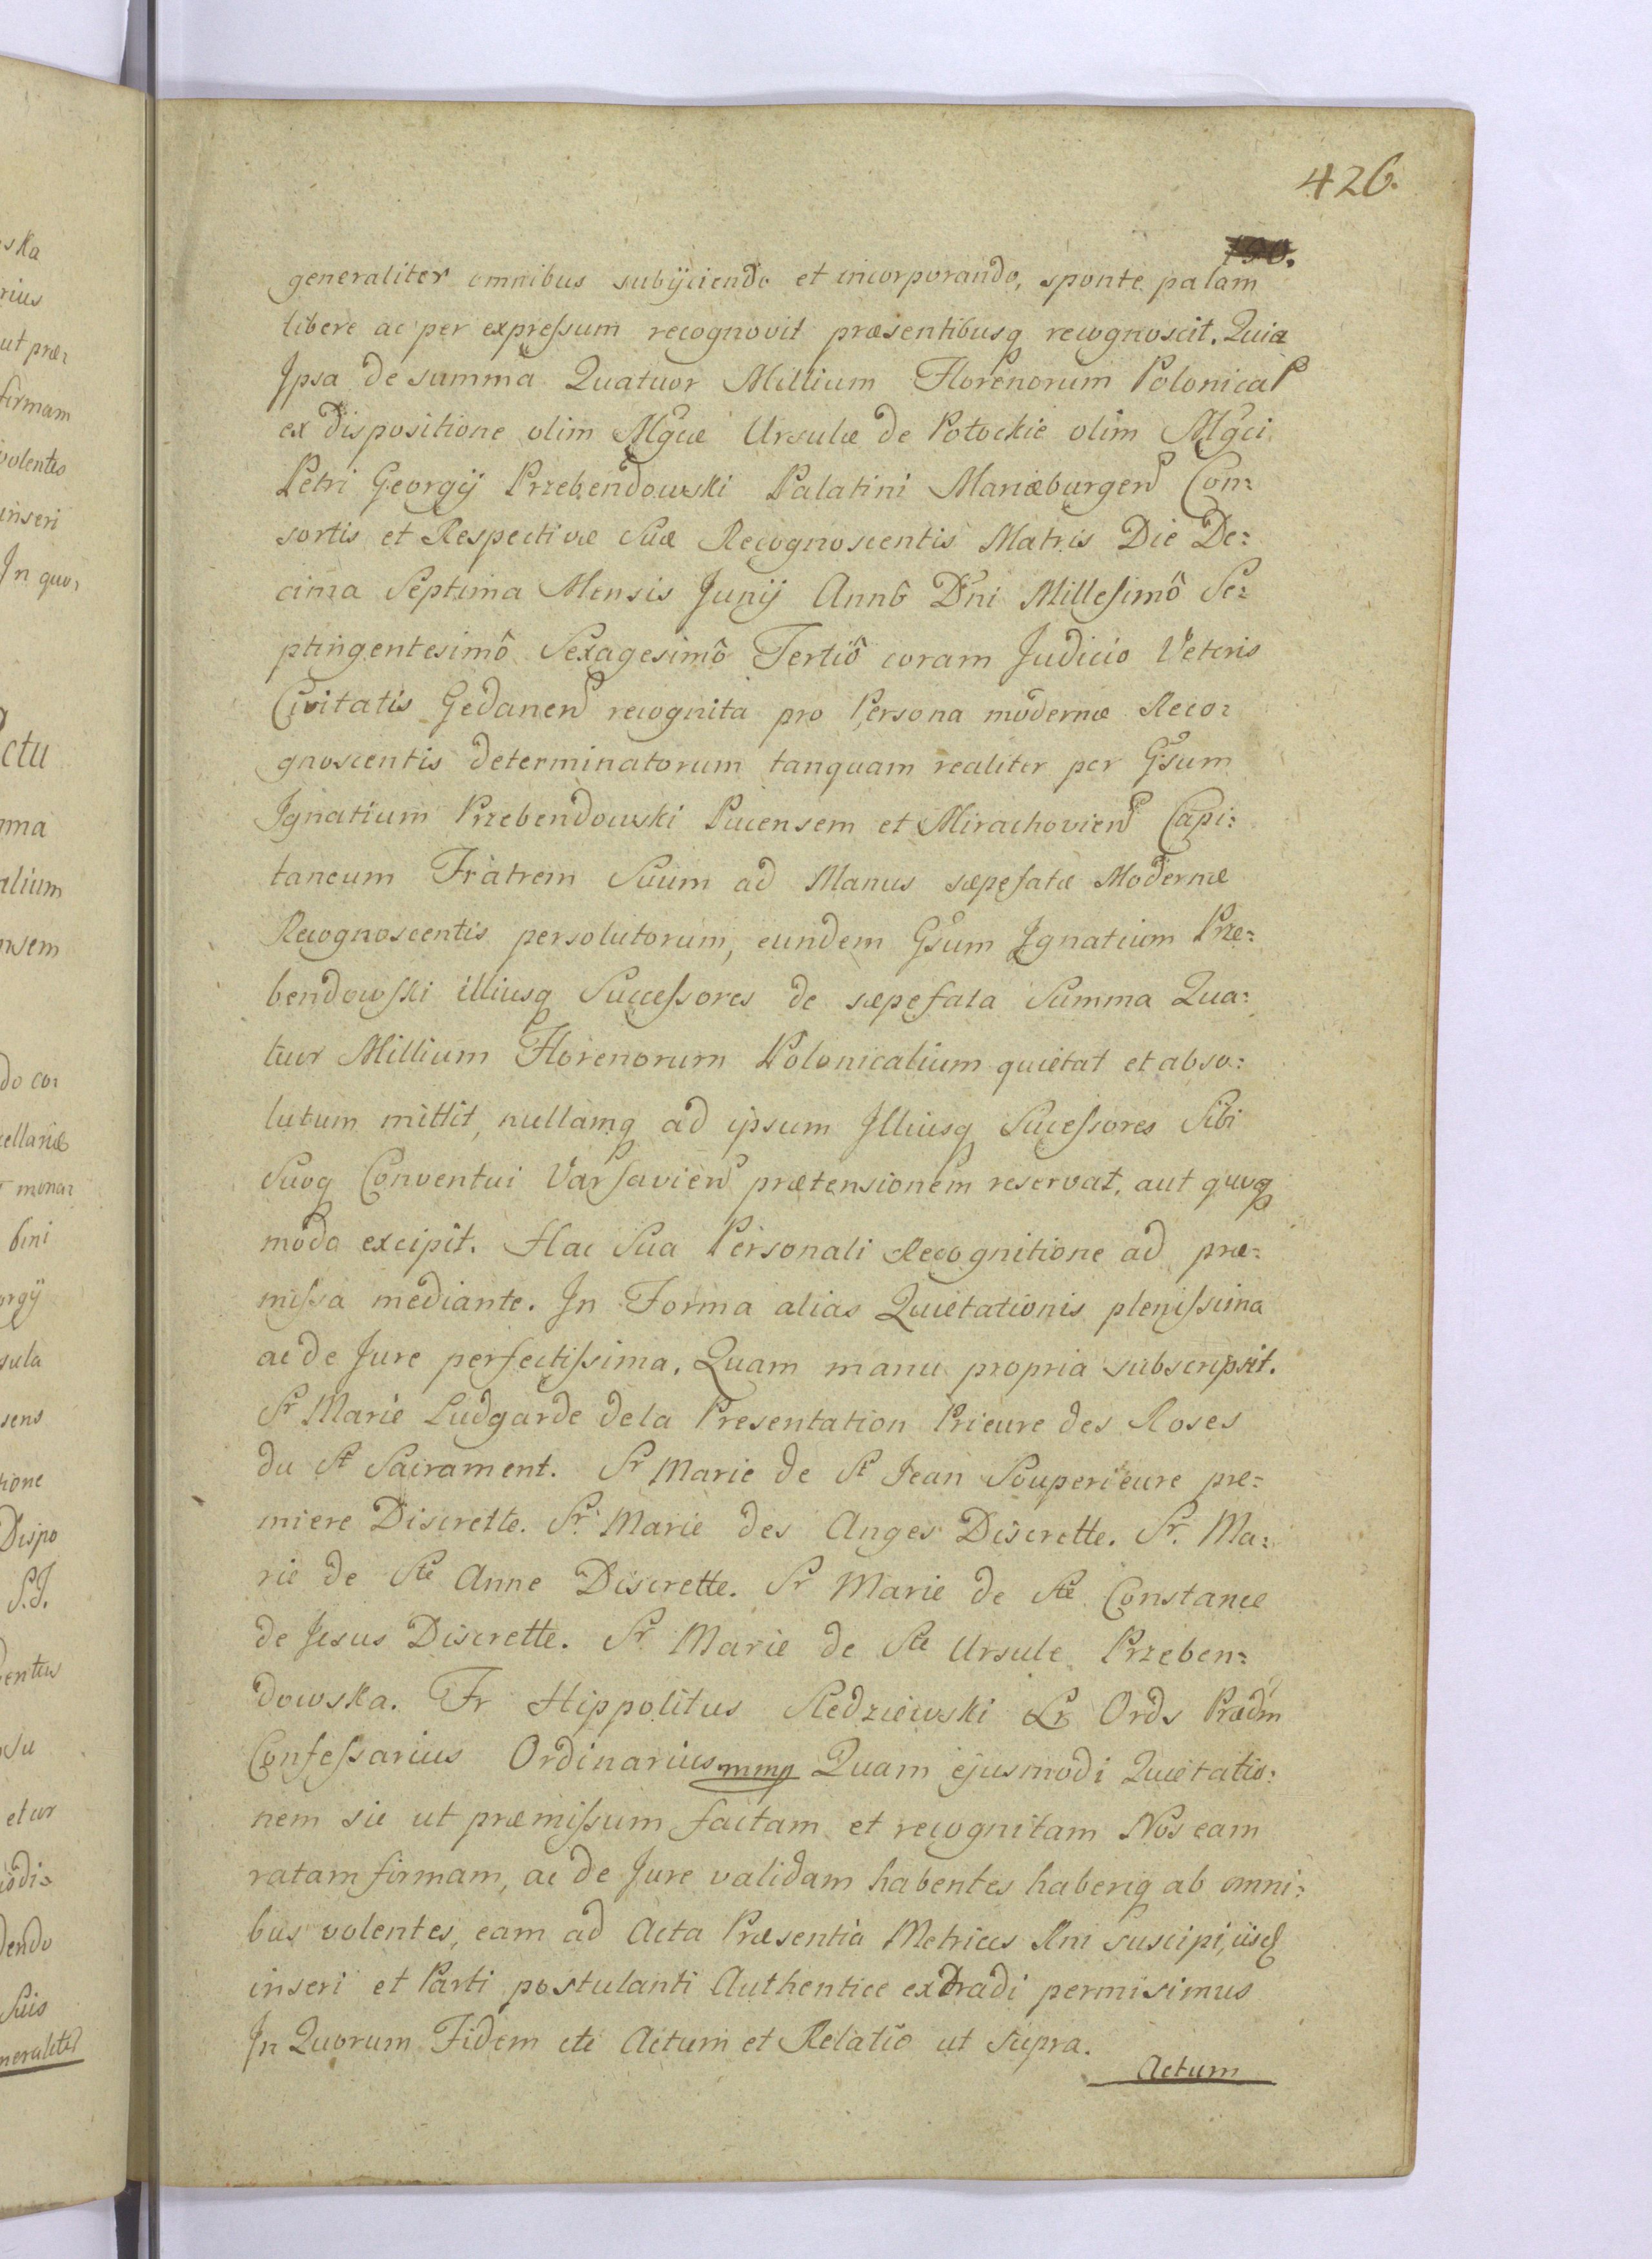 426.
190.
generaliter omnibus subijciendo et incorporando, sponte palam
libere ac per expreſsum recognovit præsentibusq recognoscit. Quia
Jpsa de summa Quatuor Millium Florenorum Polonical
ex dispositione olim Mgcæ Ursulæ de Potockie olim Mgci
Petri Georgij Przebendowski Palatini Mariæburgen Con:
sortis et Respectivæ Suæ Recognoscentis Matris Die De:
cima Septima Mensis Junij Annô Dni Milleſimô Se:
ptingentesimô Sexagesimô Tertiô coram Judicio Veteris
Civitatis Gedanen recognita pro Persona modernæ Reco:
gnoscentis determinatorum tanquam realiter per Gsum
Jgnatium Przebendowski Pucensem et Mirachovien Capi:
taneum Fratrem Suum ad Manus sæpefatæ Modernæ
Recognoscentis persolutorum, eundem Gsum Jgnatium Prze:
bendowſki illiusq Succeſsores de sæpefata Summa Qua:
tuor Millium Florenorum Polonicalium quietat et abso:
lutum mittit, nullamq ad ipsum Jlliusq Suceſsores Sibi
Suoq Conventui Varſavien prætensionem reservat, aut quoq
modo excipit. Hac Sua Personali Recognitione ad præ:
miſsa mediante. Jn Forma alias Quietationis pleniſsima
ac de Jure perfectiſsima. Quam manu propria subscripsit.
Sr Marie Ludgarde dela Presentation Prieure des Roses
du St Sacrament. Sr Marie de St Jean Souperieure pre:
miere Discrette. Sr. Marie des Anges Discrette. Sr. Ma:
rie de Ste Anne Discrette. Sr Marie de Ste Constance
de Jesus Discrette. Sr Marie de Ste Ursule Przeben:
dowska. Fr Hippolitus Kedziewski Lr Ords Prædm
Confeſsarius Ordinarius mmp Quam ejusmodi Quietatio:
nem sic ut præmiſsum factam et recognitam Nos eam
ratam firmam, ac de Jure validam habentes haberiq ab omni:
bus volentes, eam ad Acta Præsentia Metrices Rni suscipi, iisq
inseri et Parti postulanti Authentice extradi permisimus
Jn Quorum Fidem etc Actum et Relatio ut supra.
Actum